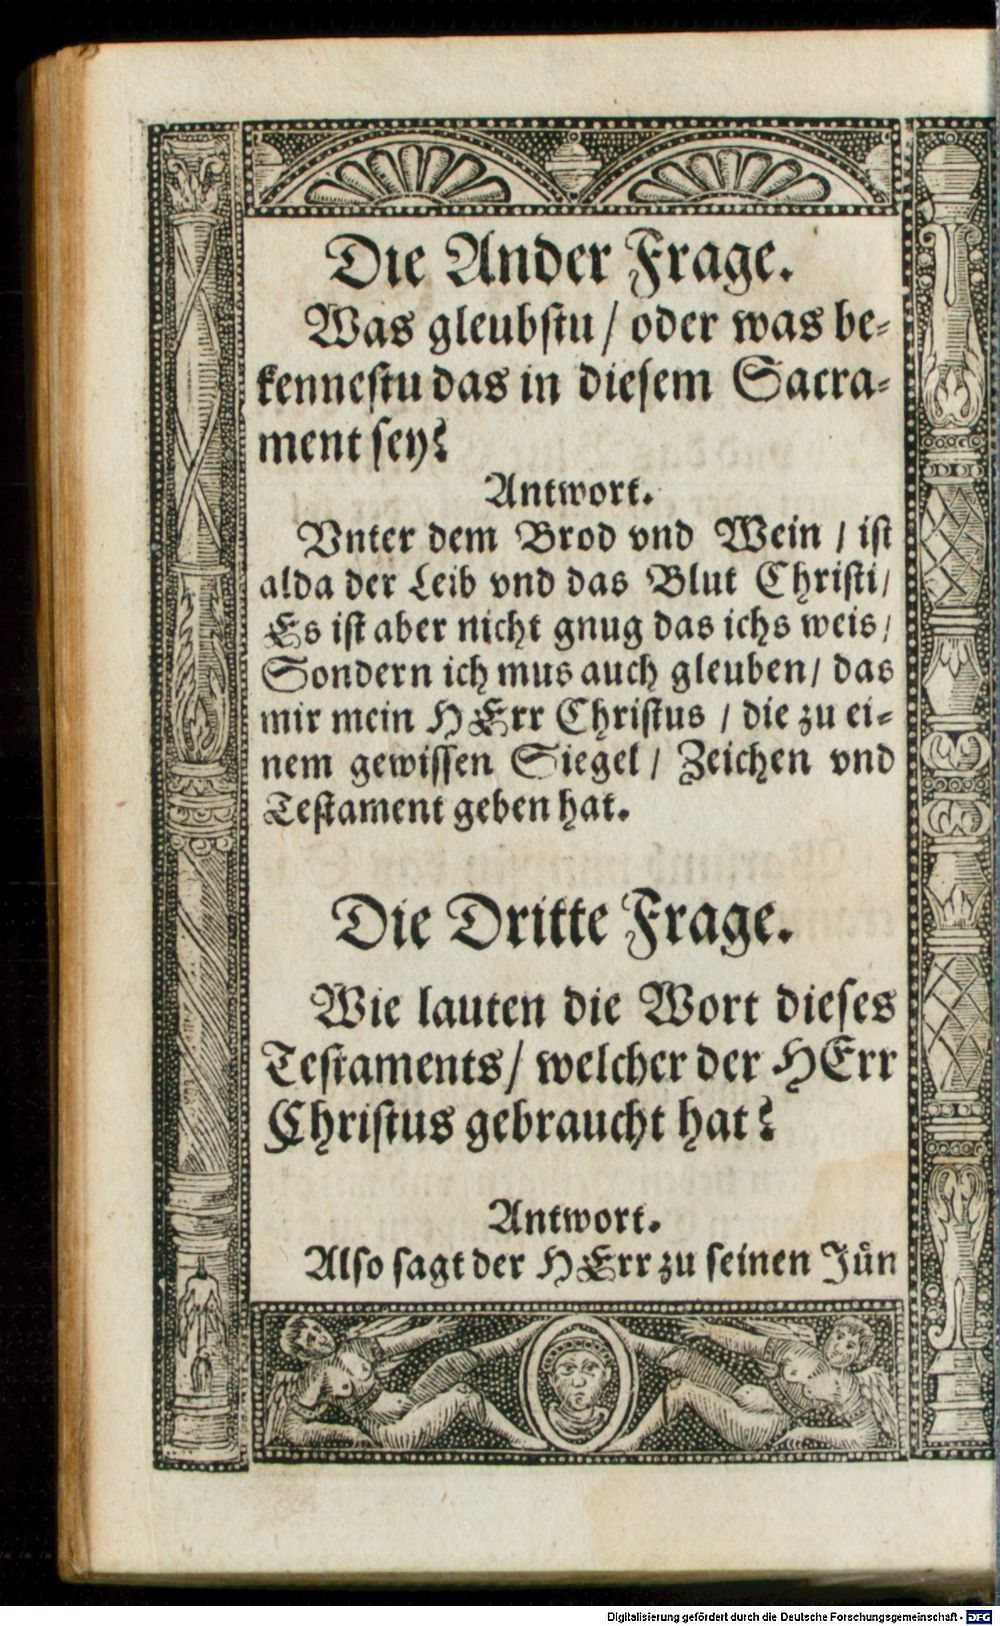 Die Ander Frage.
Was gleubstu / oder was be-
kennestu das in diesem Sacra-
ment sey?
Antwort.
Vnter dem Brod vnd Wein / ist
alda der Leib vnd das Blut Christi /
Es ist aber nicht gnug das ichs weis /
Sondern ich mus auch gleuben / das
mir mein HErr Christus / die zu ei-
nem gewissen Siegel / Zeichen vnd
Testament geben hat.
Die Dritte Frage.
Wie lauten die Wort dieses
Testaments / welcher der HErr
Christus gebraucht hat?
Antwort.
Also sagt der HErr zu seinen Jün
Digitalisierung gefördert durch die Deutsche Forschungsgemeinschaft - DFG